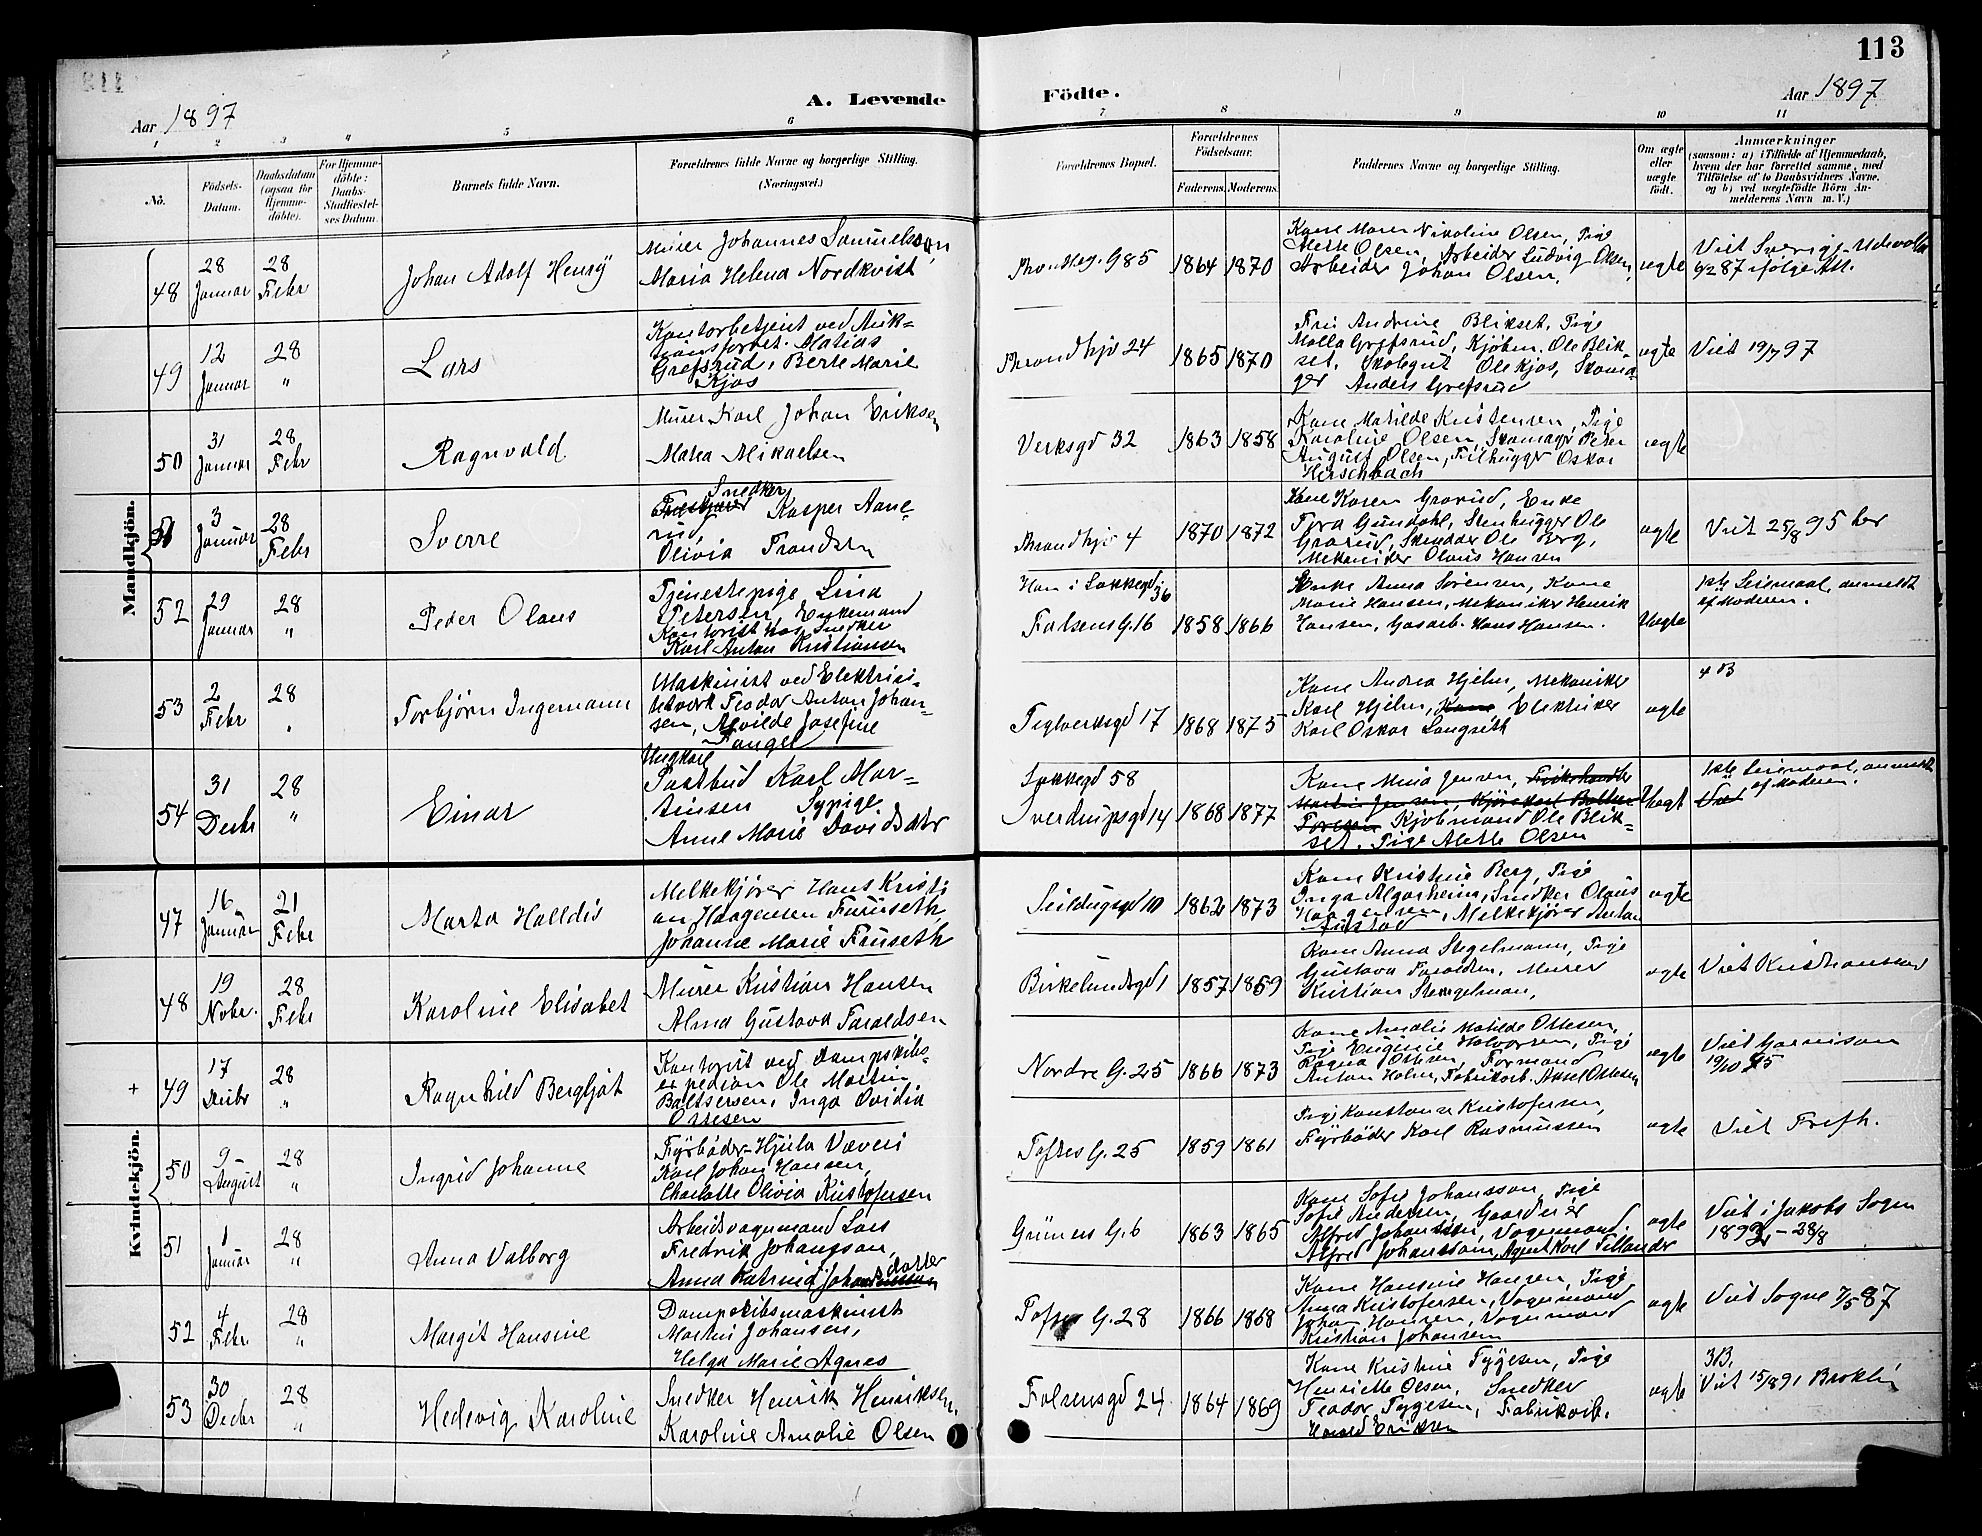 113
Aar 1897
A. Levende
Födte.
Aar 1897
1 2 3 4 5 6 7 8 9 10 11
No.
Födsels-
Datum.
Daabsdatum
(ogsaa för
Hjemme-
döbte).
For Hjemme-
döbte:
Daabs-
Stadfæstel-
ses Datum.
Barnets fulde Navn.
Forældrenes fulde Navne og borgerlige Stilling.
(Næringsvei.)
Forældrenes Bopæl.
Forældrenes
Födselsaar.
Faderens. Moderens.
Faddernes Navne og borgerlige Stilling.
Om ægte
eller
uægte
födt.
Anmærkninger
(saasom: a) i Tilfælde af Hjemmedaab,
hvem der har forrettet samme, med
Tilföielse af to Daabsvidners Navne,
og b) ved uægtefödte Börn An-
melderens Navn m. V.)
Mandkjön.
48
28
Januar
28
Febr
Johan Adolf Henry
Murer Johannes Samuelsson,
Maria Helena Nordkvist
Throndhg. 85
1864 1870
Kone Maren Nikoline Olsen, Pige
Mette Olsen, Arbeider Ludvig Olsen,
Arbeider Johan Olsen.
ægte
Viet Sverige Udevalla
6/2 87 ifølge Att.
49
12
Januar
28
"
Lars
Kontorbetjent ved Auk-
tionsforvet. Matias
Grefsrud, Berte Marie
Kjos
Throndhjv 24
1865 1870
Fru Andrine Blikset, Pige
Malla Grefsrud, Kjøbm. Ole Blik-
set, Skolegut Ole Kjos, Skomа-
ger Anders Grefsrud
ægte
Viet 19/7 97
50
31
Januar
28
Febr
Ragnvald
Murer Karl Johan Eriksen
Matea Mikaelsen
Verksgd 32
1863 1858
Kone Matilde Kristensen, Pige
Karoline Olsen, Skomager Peter
August Olsen, Filhugger Oskar
Hirschbach
ægte
51
3
Januar
28
Febr
Sverre
Snedker
Kasper Aane-
rud,
Olivia Frandsen
Throndhjv 4
1870 1872
Kone Karen Grorud, Enke
Tora Gundahl, Stenhugger Ole
Grorud, Skredder Ole Berg,
Mekaniker Olaus Hansen
ægte
Viet 25/8 95 her
52
29
Januar
28
"
Peder Olaus
Tjenestepige Lina
Petersen, Enkemand
Snedker
Karl Anton Kristiansen
Han i Sakkegd 36
Falsens G. 16
1858 1866
Enke Anna Sørensen, Kone
Marie Hansen, Mekaniker Henrik
Hansen, Gasarb. Hans Hansen.
Uægte
1ste Leiermaal, anmeldt
af Moderen.
53
2
Febr
28
"
Torbjørn Ingemann
Maskinist ved Elektrici-
tetverk Teodor Anton Johan-
sen, Alvilde Josefine
Fangel
Teglverksgd 17
1868 1875
Kone Andrea Hjelm, Mekaniker
Karl Hjelm, Kone Elektriker
Karl Oskar Langseth
ægte
4 B
54
31
Decbr
28
"
Einar
Ungkarl
Postbud Karl Mar-
tinsen Sypige
Anne Marie Davidsdtr
Sakkegd 58
Sverdrupsgd 14
1868 1877
Kone Mina Jensen,
Kjøbmand Ole Blik-
set, Pige Alette Olsen
Uægt
1ste Leiermaal, anmeldt
af Moderen.
Viet
Kvindekjön.
47
16
Januar
21
Febr
Marta Halldis
Melkekjører Hans Kristi
an Haagensen Furuseth
Johanne Marie Furuseth
Seildugsgd 10
1862 1873
Kone Kristine Berg, Pige
Inga Algarheim, Snedker Olaus
Haagensen, Melkekjører Anton
Austad
ægte
48
19
Novbr.
28
Febr
Karoline Elisabet
Murer Kristian Hansen
Alma Gustava Taraldsen
Birkelundsgd 1
1857 1859
Kone Anna Stegelmann, Pige
Gustava Taraldsen, Murer
Kristian Stegelman,
ægte
Viet Kristianssand
+
49
17
Decbr
28
"
Ragnhild Bergljot
Kontorist ved Dampskibs-
expedion Ole Martin
Baltsersen, Inga Ovidia
Ottesen
Nordre G. 25
1866 1873
Kone Amalie Matilde Ottesen,
Pige Eugenie Halvorsen, Pige
Ragna Ottesen, Formand
Anton Holm, Fabrikarb. Aksel Ottesen
ægte
Viet Garnison
19/10 95
50
9
August
28
"
Ingrid Johanne
Fyrbøder Hjula Væveri
Karl Johan Hansen,
Charlotte Olivia Kristofersen
Toftes G. 25
1859 1861
Pige Konstanse Kristofersen,
Fyrbøder Karl Rasmussen
ægte
Viet Trefh.
51
1
Januar
28
"
Anna Valborg
Arbeidsvognmand Lars
Fredrik Johansson,
Anna Katrina Johansdotter
Grüners G. 6
1863 1865
Kone Sofie Johansson, Pige
Sofie Andersen, Gaardeier
Alfred Johansson, Vognmand
Alfred Johansson, Agent Karl Tillander
ægte
Viet i Jakobs Sogn
1892 - 28/8
52
4
Febr
28
"
Margit Hansine
Dampskibsmaskinist
Martin Johansen,
Helga Marie Agnes
Toftes G. 28
1866 1868
Kone Hansine Hansen, Pige
Anna Kristofersen, Vognmand
Johan Hansen, Vognmand
Kristian Johansen
ægte
Viet Sogne 7/5 87
53
30
Decbr
28
"
Hedevig Karoline
Snedker Henrik Henriksen,
Karoline Amalie Olsen
Falsensgd 24
1864 1869
Kone Kristine Tygesen, Pige
Henriette Olsen, Snedker
Teodor Tygesen, Fabrikarb.
Harald Eriksen
ægte
3 B.
Viet 15/8 91 Broklin